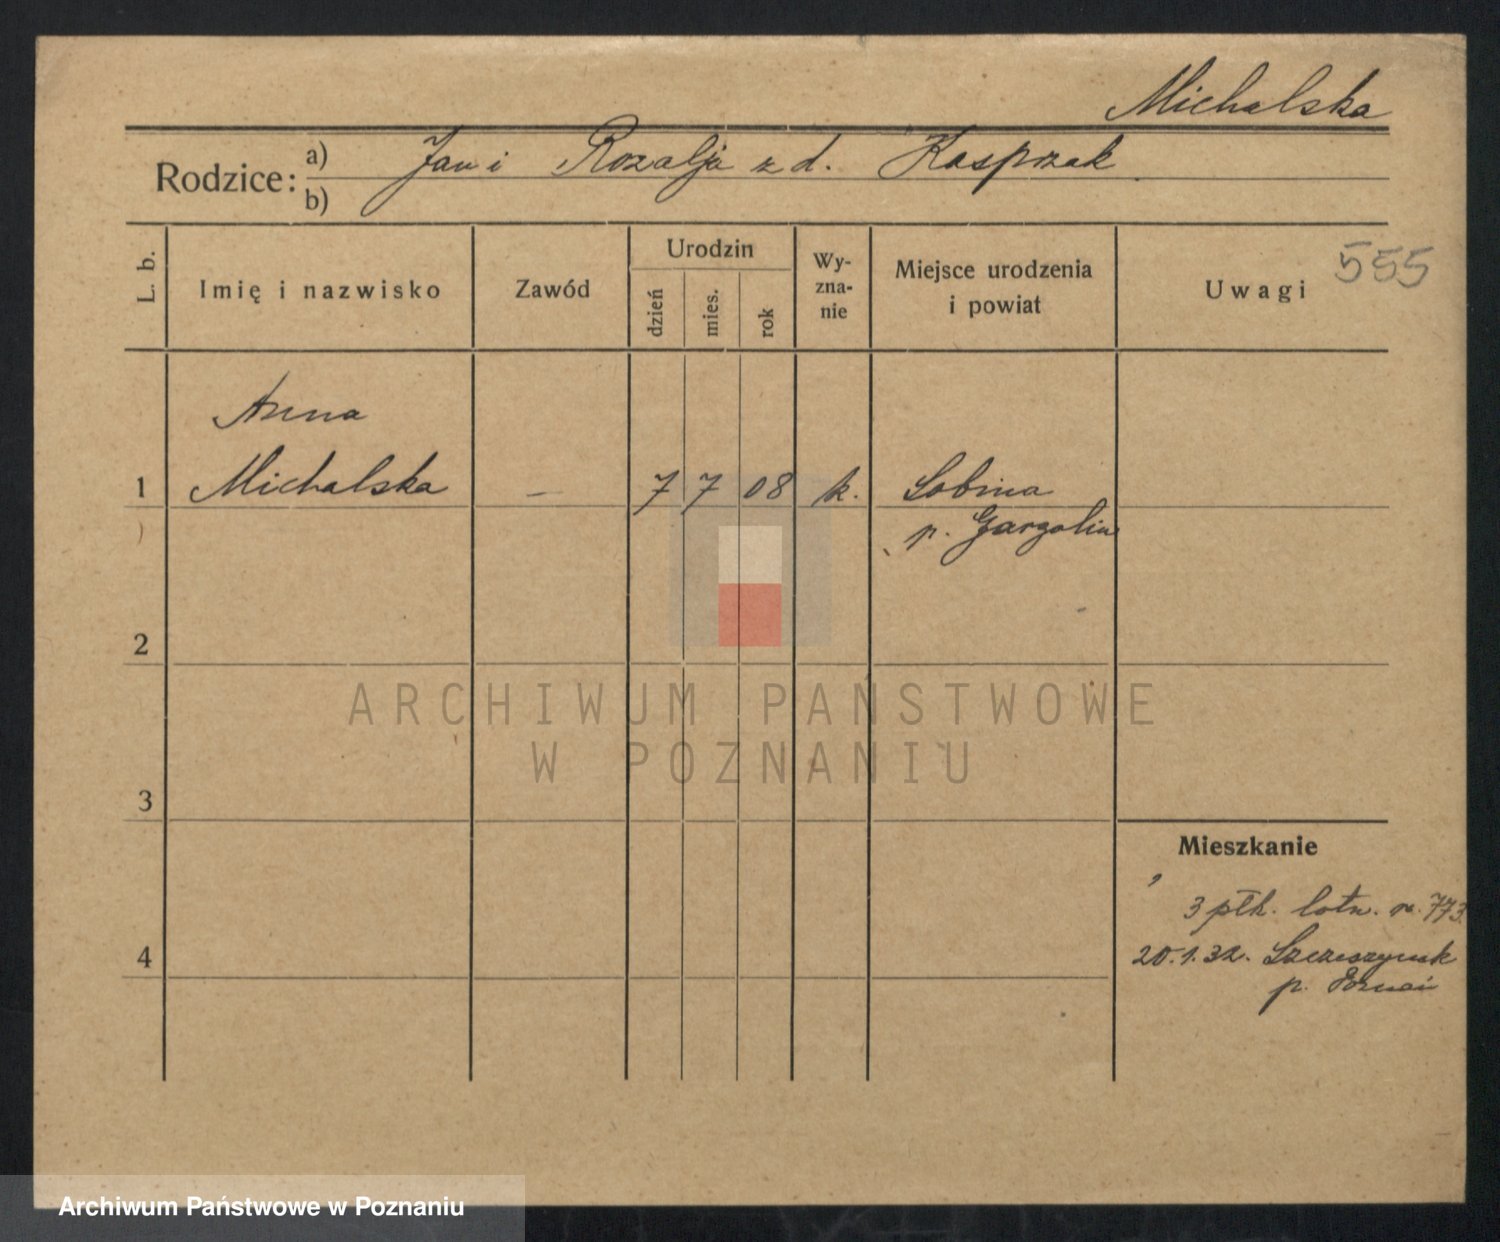 Michalska
Rodzice: a) Jan i Rozalja z d. Kasprzak
b)
L. b.
Imię i nazwisko
Zawód
Urodzin
dzień
mies.
rok
Wy-
zna-
nie
Miejsce urodzenia
i powiat
Uwagi
555
Anna
1 Michalska – 7 7 08 k. Sobina
p.
2
3
4
Mieszkanie
3 płk. lotn. n. 773
20.1.32.
p.
ARCHIWUM PAŃSTWOWE
W POZNANIU
Archiwum Państwowe w Poznaniu